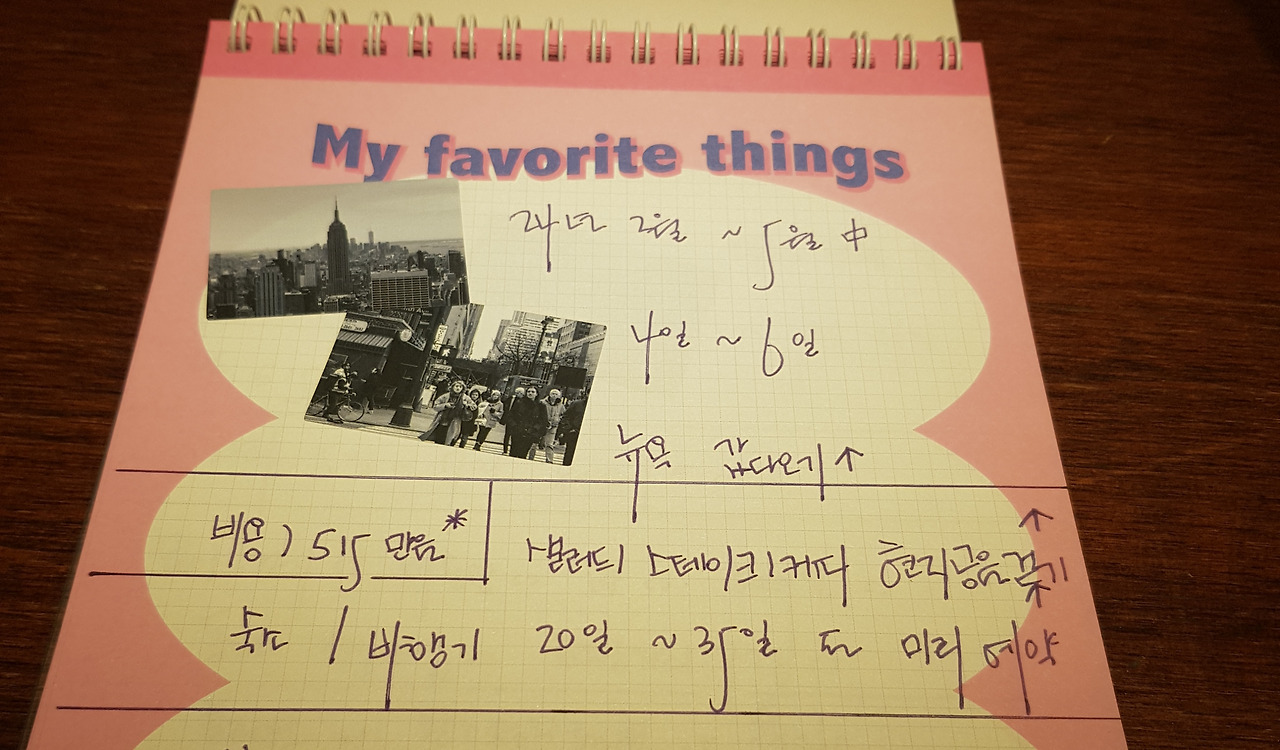 My favorite things
24년 2월 ~ 5월 中
4일 ~ 6일
뉴욕 갔다오기 ↑
비용) 515 만원 *
샐러드 | 스테이크 | 커피
숙소 / 비행기 20일 ~ 35일 전 미리 예약